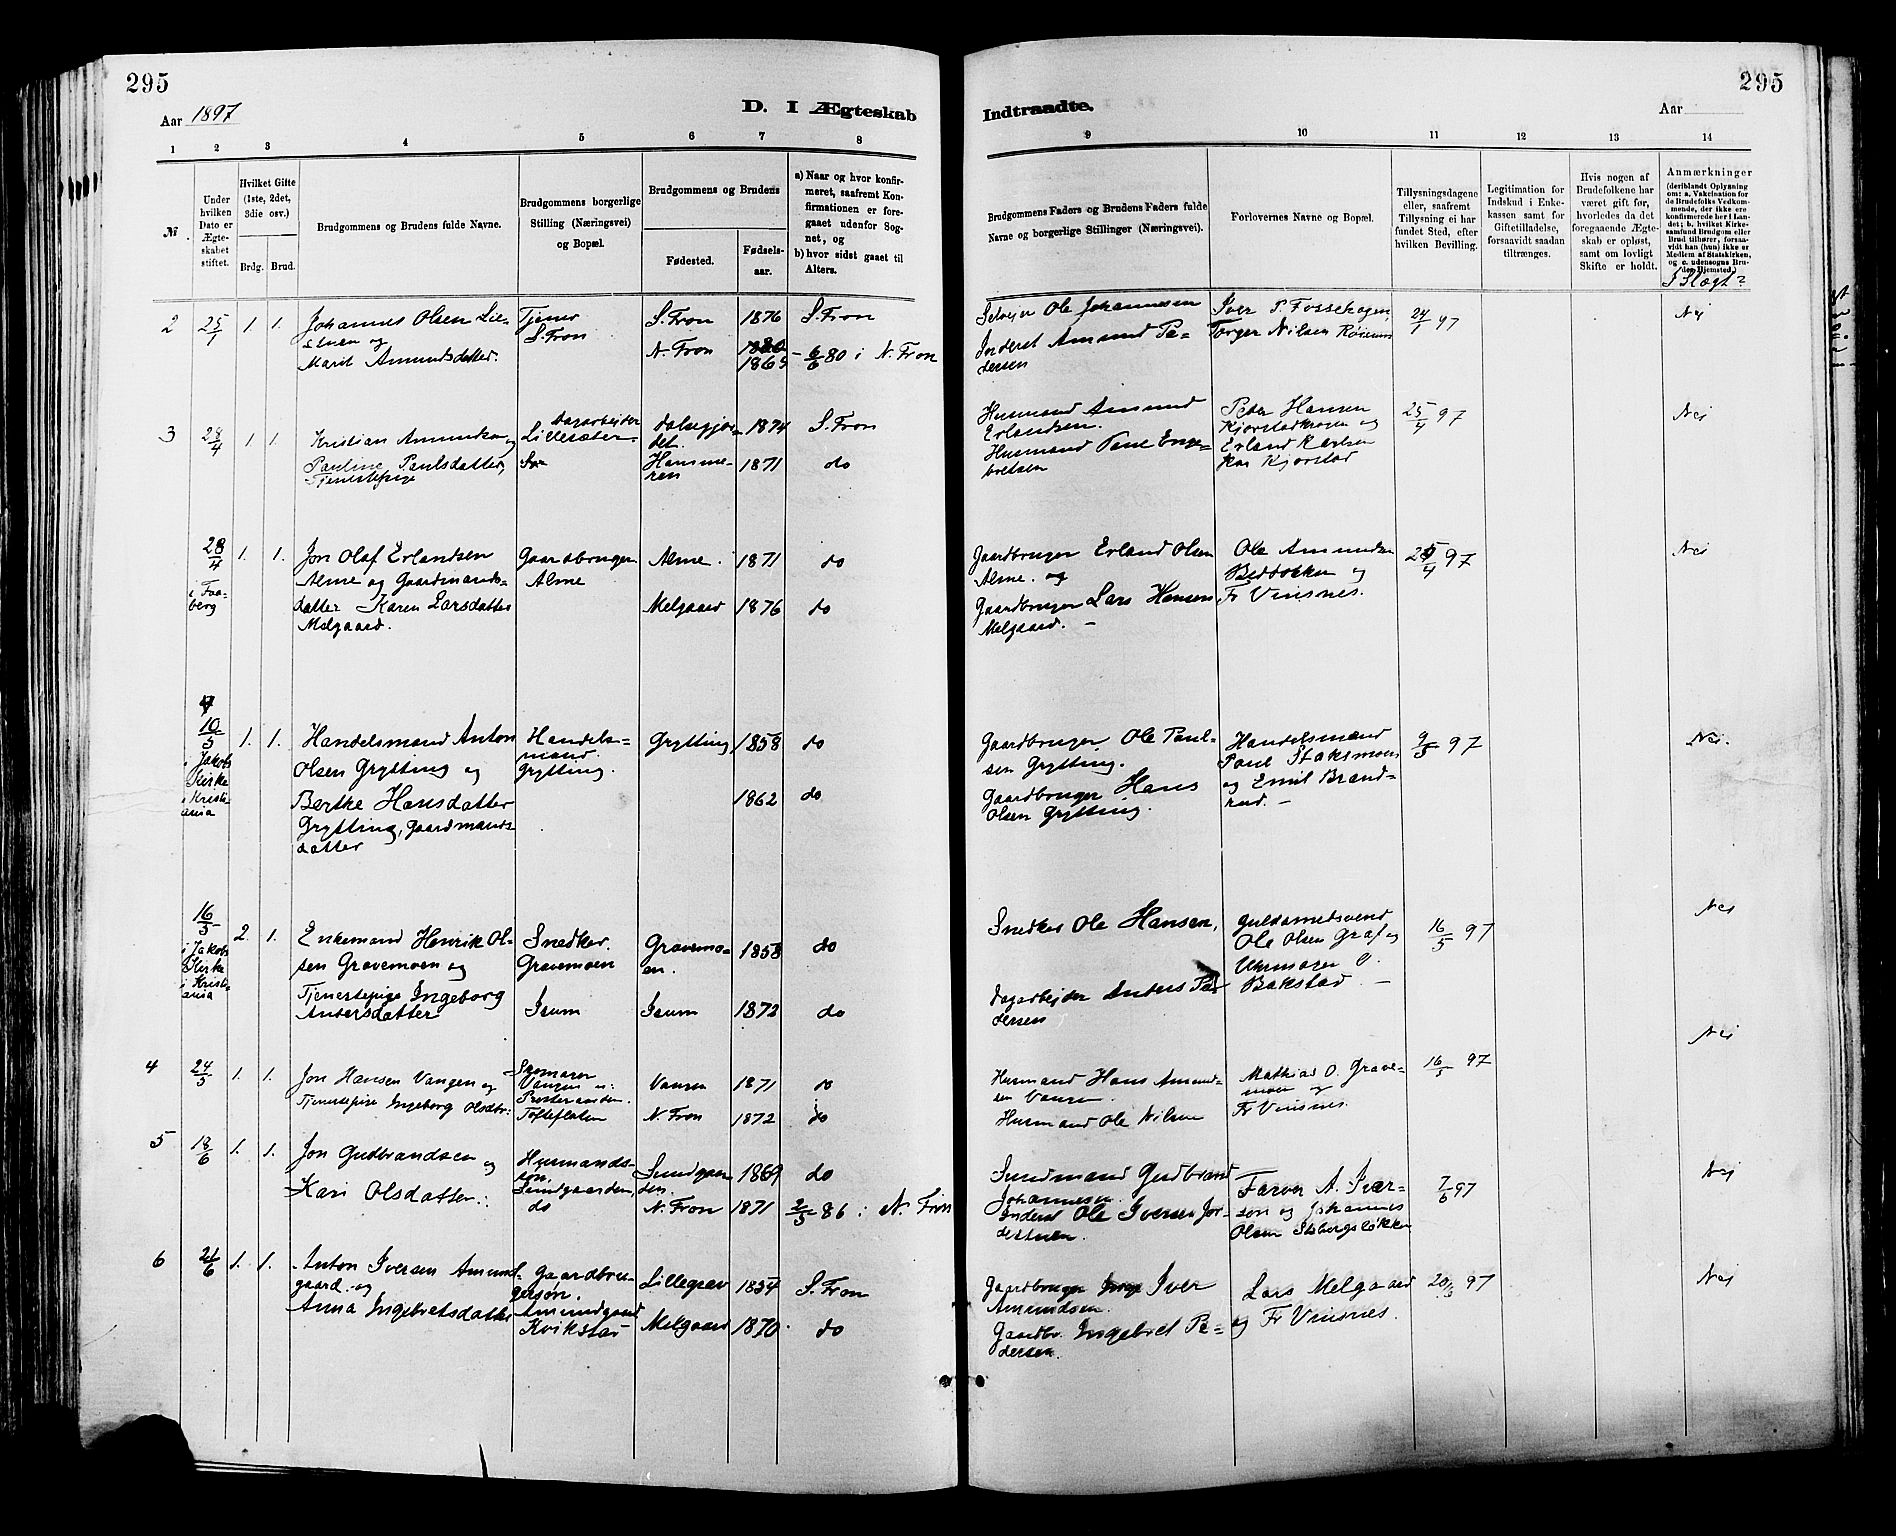 295
Aar 1897
D. I Ægteskab
1 2 3 4 5 6 7 8
№
Under hvilken Dato er Ægteskabet stiftet.
Hvilket Gifte (1ste, 2det, 3die osv.)
Brdg. Brud.
Brudgommens og Brudens fulde Navne.
Brudgommens borgerlige Stilling (Næringsvei) og Bopæl.
Brudgommens og Brudens
Fødested.
Fødselsaar.
a) Naar og hvor konfirmeret, saafremt Konfirmationen er foregaaet udenfor Sognet, og
b) hvor sidst gaaet til Alters.
2 25/1 1. 1. Johannes Olsen Lie- Tjener S. Fron 1876 S. Fron
stuen og S. Fron
Marit Amundsdatter. N. Fron 1880 1865 - 6/6 80 i N. Fron
3 28/4 1. 1. Kristian Amundsen og Dagarbeider Dalsgjor- 1874 S. Fron
Lillesæter det
Pauline Paulsdatter, Hamme- 1871 do
Tjenestepige ren
28/4 1. 1. Jon Olaf Erlandsen Gaardbruger Alme. 1871 do
i Faaberg Alme og Gaardmands- Alme
datter Karen Larsdatter Melgaard 1876 do
Melgaard.
10/5 1. 1. Handelsmand Anton Handels- Grytting 1858 do
i Jakobs Kirke i Kristiania Olsen Grytting og mand. Grytting.
Berthe Hansdatter 1862 do
Grytting, Gaardmands-
datter
16/5 2. 1. Enkemand Henrik Ol- Snedker. Gravemo- 1858 do
i Jakobs Kirke i Kristiania sen Gravemoen og Gravemoen en.
Tjenestepige Ingeborg Isum Isum 1872 do
Andersdatter
4 24/5 1. 1. Jon Hansen Vangen og Sagmarer Vangen 1871 do
Vangen
Tjenestepige Ingeborg Olsdtr: Tofteflaten N. Fron 1872 do
5 18/6 1. 1. Jon Gudbrandsen og Husmands- Sundgaar- 1869 do
søn, Sundgaarden, den.
Kari Olsdatter. do N. Fron 1871 2/5 86 i N. Fron
6 21/6 1. 1. Anton Iversen Amund- Gaardbru- Lillegrav 1854 S. Fron
gaard og gersøn. Amundgaard
Anna Ingebretsdatter Kvikstad Melgaard 1870 do
295
Indtraadte.
Aar
9 10 11 12 13 14
Brudgommens Faders og Brudens Faders fulde Navne og borgerlige Stillinger (Næringsvei).
Forlovernes Navne og Bopæl.
Tillysningsdagene eller, saafremt Tillysning ei har fundet Sted, efter hvilken Bevilling.
Legitimation for Indskud i Enkekassen samt for Giftetilladelse, forsaavidt saadan tiltrænges.
Hvis nogen af Brudefolkene har været gift før, hvorledes da det foregaaende Ægteskab er opløst, samt om lovligt Skifte er holdt.
Anmærkninger
(deriblandt Oplysning om: a. Vakcination for de Brudefolks Vedkommende, der ikke ere konfirmerede her i Landet; b. hvilket Kirkesamfund Brudgom eller Brud tilhører, forsaavidt han (hun) ikke er Medlem af Statskirken, og c. udensogns Brudes Hjemsted.)
I Slægt?
Selveier Ole Johannesen Iver P. Fossehagen 24/1 97 Nei
Inderst Amund Pe- Torger Nilsen Røisum
dersen
Husmand Amund Peder Hansen 25/4 97 Nei
Erlandsen. Kjorstadhagen og
Husmand Paul Enge- Erland Karlsen
bretsen Kjorstad
Gaardbruger Erland Olsen Ole Amundsen 25/4 97 Nei
Alme. og og
Gaardbruger Lars Hansen Fr Vinsnes.
Melgaard. -
Gaardbruger Ole Paul- Handelsmand 9/5 97 Nei.
sen Grytting. Paul Staksmoen
Gaardbruger Hans og Emil Brand-
Olsen Grytting. rud. -
Snedker Ole Hansen, Guldsmedsvend 16/5 97 Nei
Ole Olsen Graf og
Uhrmager O.
Dagarbejder Anders Pe- Bakstad. -
dersen
Husmand Hans Amund- Mathias O. Grave- 16/5 97 Nei
sen Vangen. moen og
Husmand Ole Nilsen Fr Vinsnes.
Sundmand Gudbrand Farver A. Iver- 7/6 97 Nei
Johannesen son og Johannes
Inderst Ole Iversen Jor- Olsen
destuen.
Gaardbruger Iver Lars Melgaard 20/6 97 Nei
Amundsen.
Gaardbr. Ingebret Pe- og Fr Vinsnes.
dersen.